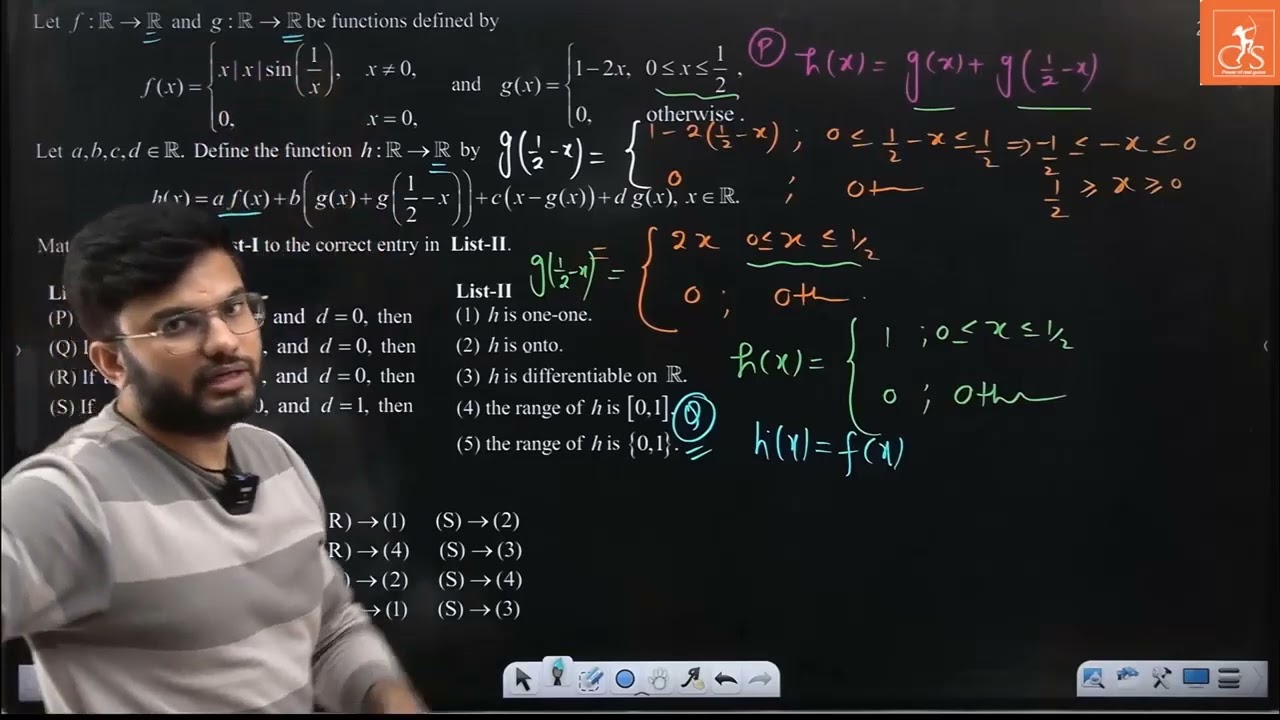 Let f : ℝ → ℝ and g : ℝ → ℝ be functions defined by
f(x) = { x|x| sin(1/x), x ≠ 0, 0, x = 0, and g(x) = { 1−2x, 0 ≤ x ≤ 1/2, 0, otherwise.
Let a,b,c,d ∈ ℝ. Define the function h : ℝ → ℝ by
h(x) = a f(x) + b(g(x) + g(1/2 − x)) + c(x − g(x)) + d g(x), x ∈ ℝ.
Mat st-I to the correct entry in List-II.
List-II
(P) and d = 0, then (1) h is one-one.
(Q) I and d = 0, then (2) h is onto.
(R) If and d = 0, then (3) h is differentiable on ℝ.
(S) If 0, and d = 1, then (4) the range of h is [0,1].
(5) the range of h is {0,1}.
R) → (1) (S) → (2)
R) → (4) (S) → (3)
) → (2) (S) → (4)
→ (1) (S) → (3)
(P) h(x) = g(x) + g(1/2 − x)
g(1/2 − x) = { 1 − 2(1/2 − x) ; 0 ≤ 1/2 − x ≤ 1/2 ⇒ −1/2 ≤ −x ≤ 0
0 ; Oth 1/2 ≥ x ≥ 0
g(1/2 − x) = { 2x 0 ≤ x ≤ 1/2
0 ; Oth.
h(x) = { 1 ; 0 ≤ x ≤ 1/2
0 ; Other
(Q) h(x) = f(x)
CS